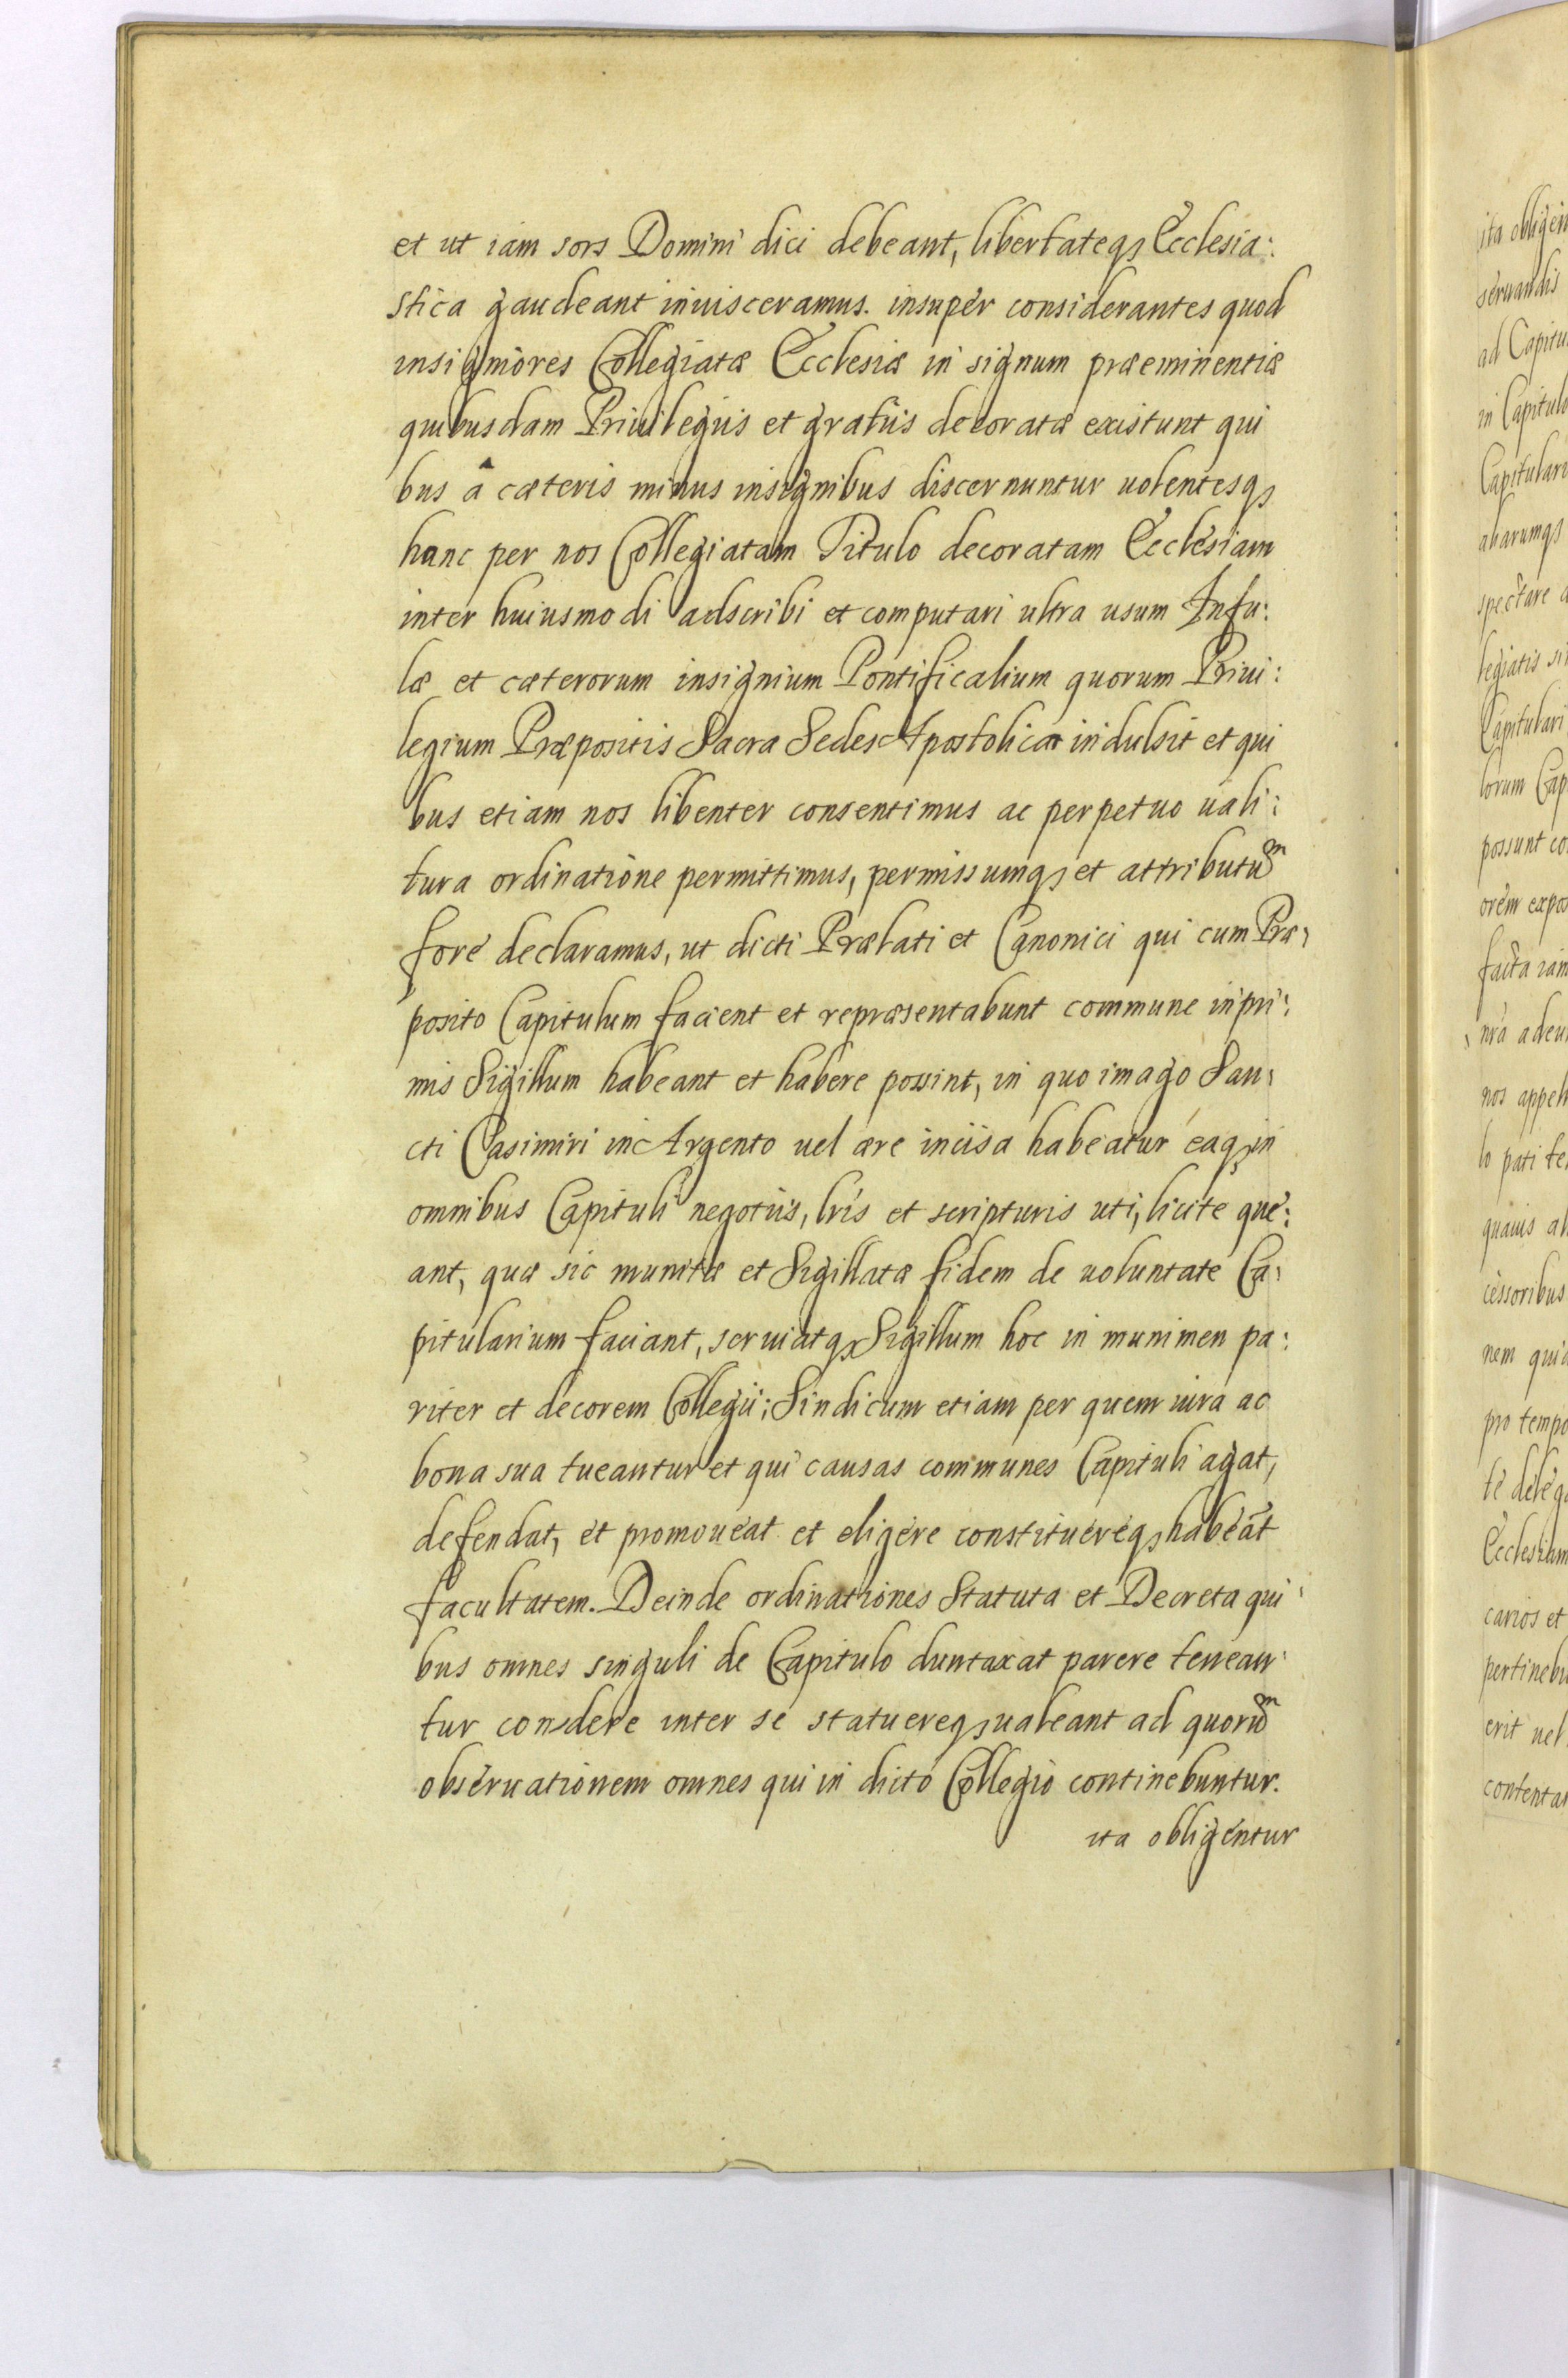 et ut iam sors Domini dici debeant, libertateqȝ Ecclesia:
stica gaudeant inuisceramus. insuper considerantes quod
insigniores Collegiatæ Ecclesiæ in signum præeminentiæ
quibusdam Priuilegiis et gratiis decoratæ existunt qui
bus â cæteris minus insignibus discernuntur uolentesqȝ
hanc per nos Collegiatam Titulo decoratam Ecclesiam
inter huiusmodi adscribi et computari ultra usum Infu:
læ et cæterorum insignium Pontificalium quorum Priui:
legium Præpositis Sacra Sedes Apostolica indulsit et qui
bus etiam nos libenter consentimus ac perpetuo uali:
tura ordinatione permittimus, permissumqȝ et attributuᵐ
fore declaramus, ut dicti Prælati et Canonici qui cum Præ,
posito Capitulum facient et repræsentabunt commune inpri:
mis Sigillum habeant et habere possint, in quo imago San:
cti Casimiri in Argento uel ære incisa habeatur eaqȝ in
omnibus Capituli negotiis, lris et scripturis uti, licite que:
ant, quæ sic munitæ et Sigillatæ fidem de uoluntate Ca:
pitularium faciant, seruiatqȝ Sigillum hoc in munimen pa:
riter et decorem Collegii; Sindicum etiam per quem iura ac
bona sua tueantur et qui causas communes Capituli agat,
defendat, et promoueat et eligere constituereqȝ habeāt
facultatem. Deinde ordinationes Statuta et Decreta qui:
bus omnes singuli de Capitulo duntaxat parere tenean:
tur condere inter se statuereqȝ ualeant ad quoruᵐ
obseruationem omnes qui in dicto Collegio continebuntur.
ita obligentur
ad Capitu
in Capitulo
spectare
legiatis
possunt co
facta iam
nos appell
lo pati te
cessoribus
nem
pro tempo
carios et
erit uel